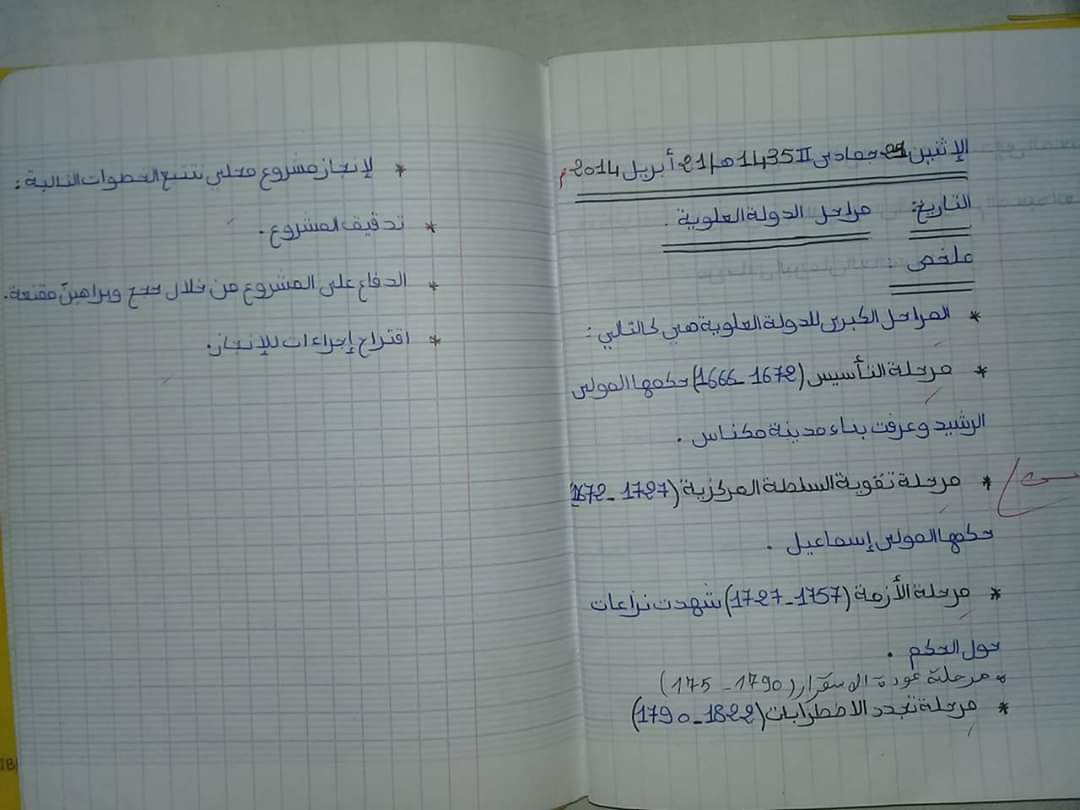 الإثنين 21 جمادى II 1435هـ/21 أبريل 2014م
التاريخ: مراحل الدولة العلوية.
ملخص:
* المراحل الكبرى للدولة العلوية هي كالتالي:
* مرحلة التأسيس (1672-1666) حكمها المولى
الرشيد وعرفت بناء مدينة مكناس.
* مرحلة تقوية السلطة المركزية (1727-1672)
حكمها المولى إسماعيل.
* مرحلة الأزمة (1757-1727) شهدت نزاعات
حول الحكم.
* مرحلة عودة الاستقرار (1790-175)
* مرحلة تجدد الاضطرابات (1822-1790)
* لإنجاز مشروع محلي نتتبع الخطوات التالية:
* تدقيق المشروع.
* الدفاع على المشروع من خلال حجج وبراهين مقنعة.
* اقتراح إجراءات للإنجاز.